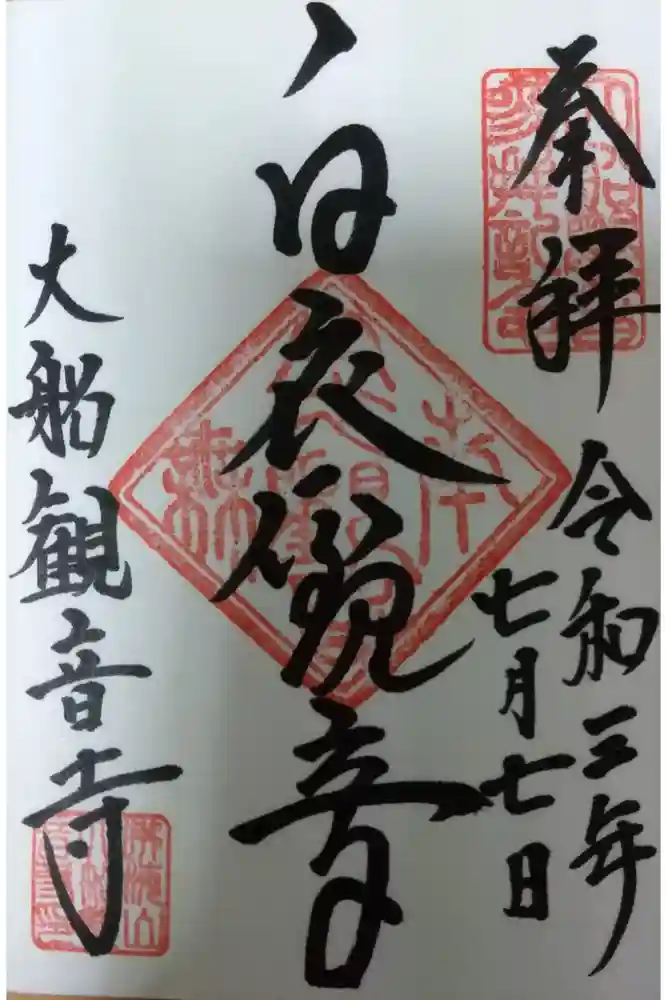 奉拝
令和三年
七月七日
白衣観音
大船観音寺